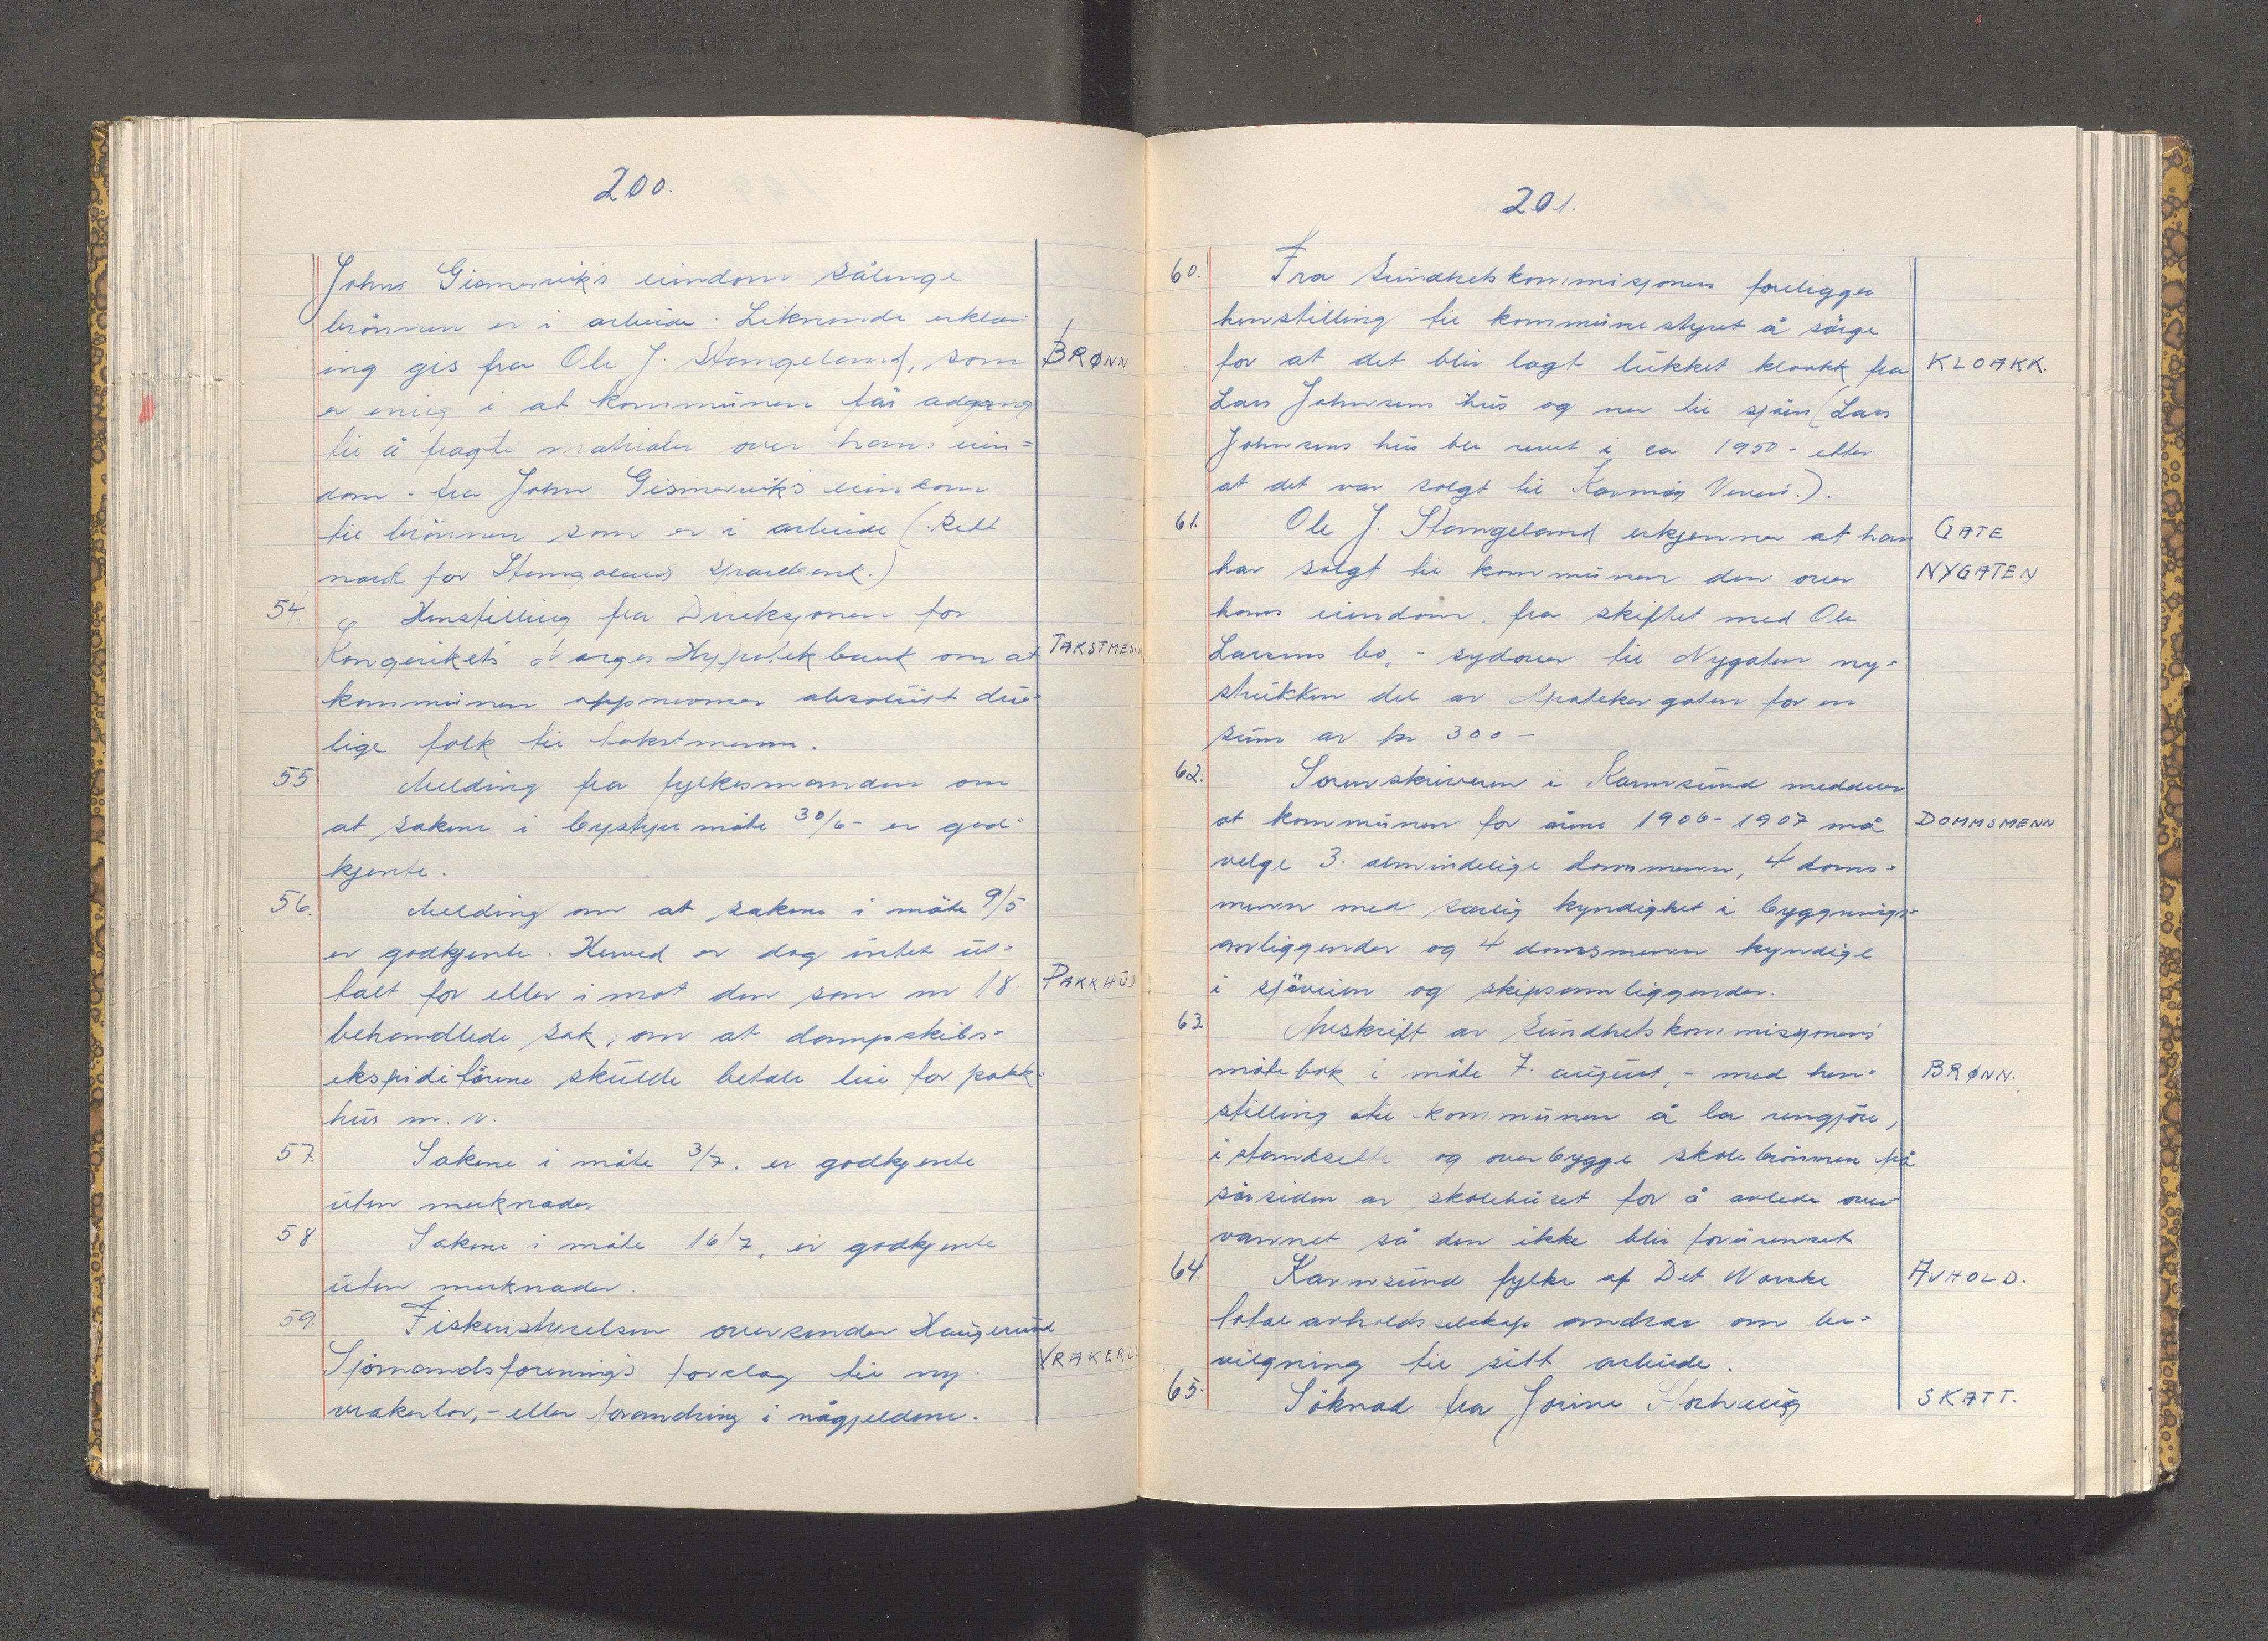 200.
Johns Gismerviks eiendom sålenge
brønnen er i arbeide. Liknende erklær-
ing gis fra Ole J. Stangeland, som
BRØNN
er enig i at kommunen får adgang
til å fragte matrialer over hans eien=
dom - fra John Gismerviks eiendom
til brønnen som er i arbeide (Rett
nord for Stangeland Sparebank.)
54. Henstilling fra Direksjonen for
Kongerikets Norges Hypotekbank om at
TAKSTMENN
kommunen oppnevner absolutt due-
lige folk til takstmenn.
55 Melding fra fylkesmanden om
at sakene i bystyremøte 30/6- er god-
kjente.
56. Melding om at sakene i møte 9/5
er godkjente. Herved er dog intet ut-
talt for eller imot den som nr 18.
PAKKHUS
behandlede sak, om at dampskibs=
ekspiditørene skulde betale leie for pakk-
hus m.v.
57. Sakene i møte 3/7. er godkjente
uten merknader
58 Sakene i møte 16/7, er godkjente
uten merknader.
59. Fiskeristyrelsen oversender Haugesund
Sjømandsforenings forslag til ny
VRAKERL
vrakerlov, - eller forandring i någjeldene.
201.
60. Fra Sundhetskommisjonen foreligger
henstilling til kommunestyret å sørge
for at det blir lagt lukket kloakk fra
KLOAKK.
Lars Johnsens hus og ner til sjøen (Lars
Johnsens hus ble revet i ca 1950 - etter
at det var solgt til Karmøy Veveri.).
61. Ole J. Stangeland erkjenner at han
GATE
har solgt til kommunen den over
NYGATEN
hans eiendom. fra skiftet med Ole
Larsens bo, - sydover til Nygaten ny-
strukken del av Apotekergaten for en
sum av kr 300 -
62. Sorenskriveren i Karmsund meddeler
at kommunen for årene 1906-1907 må
DOMMSMENN
velge 3. almindelige domsmenn, 4 doms=
menn med særlig kyndighet i bygnings=
anliggender og 4 domsmenn kyndige
i sjøveien og skipsanliggender.
63. Avskrift av Sundhetskommisjonens
møtebok i møte 7. august, - med hen=
BRØNN.
stilling til kommunen å la rengjøre,
istandsette og overbygge skolebrønnen på
sørsiden av skolehuset for å avlede over
vannet så den ikke blir forurenset
64. Karmsund fylke af Det Norske
AVHOLD.
totalavholdsselskap andrar om be-
vilgning til sitt arbeide.
65. Søknad fra Jorine Storhaug
SKATT.